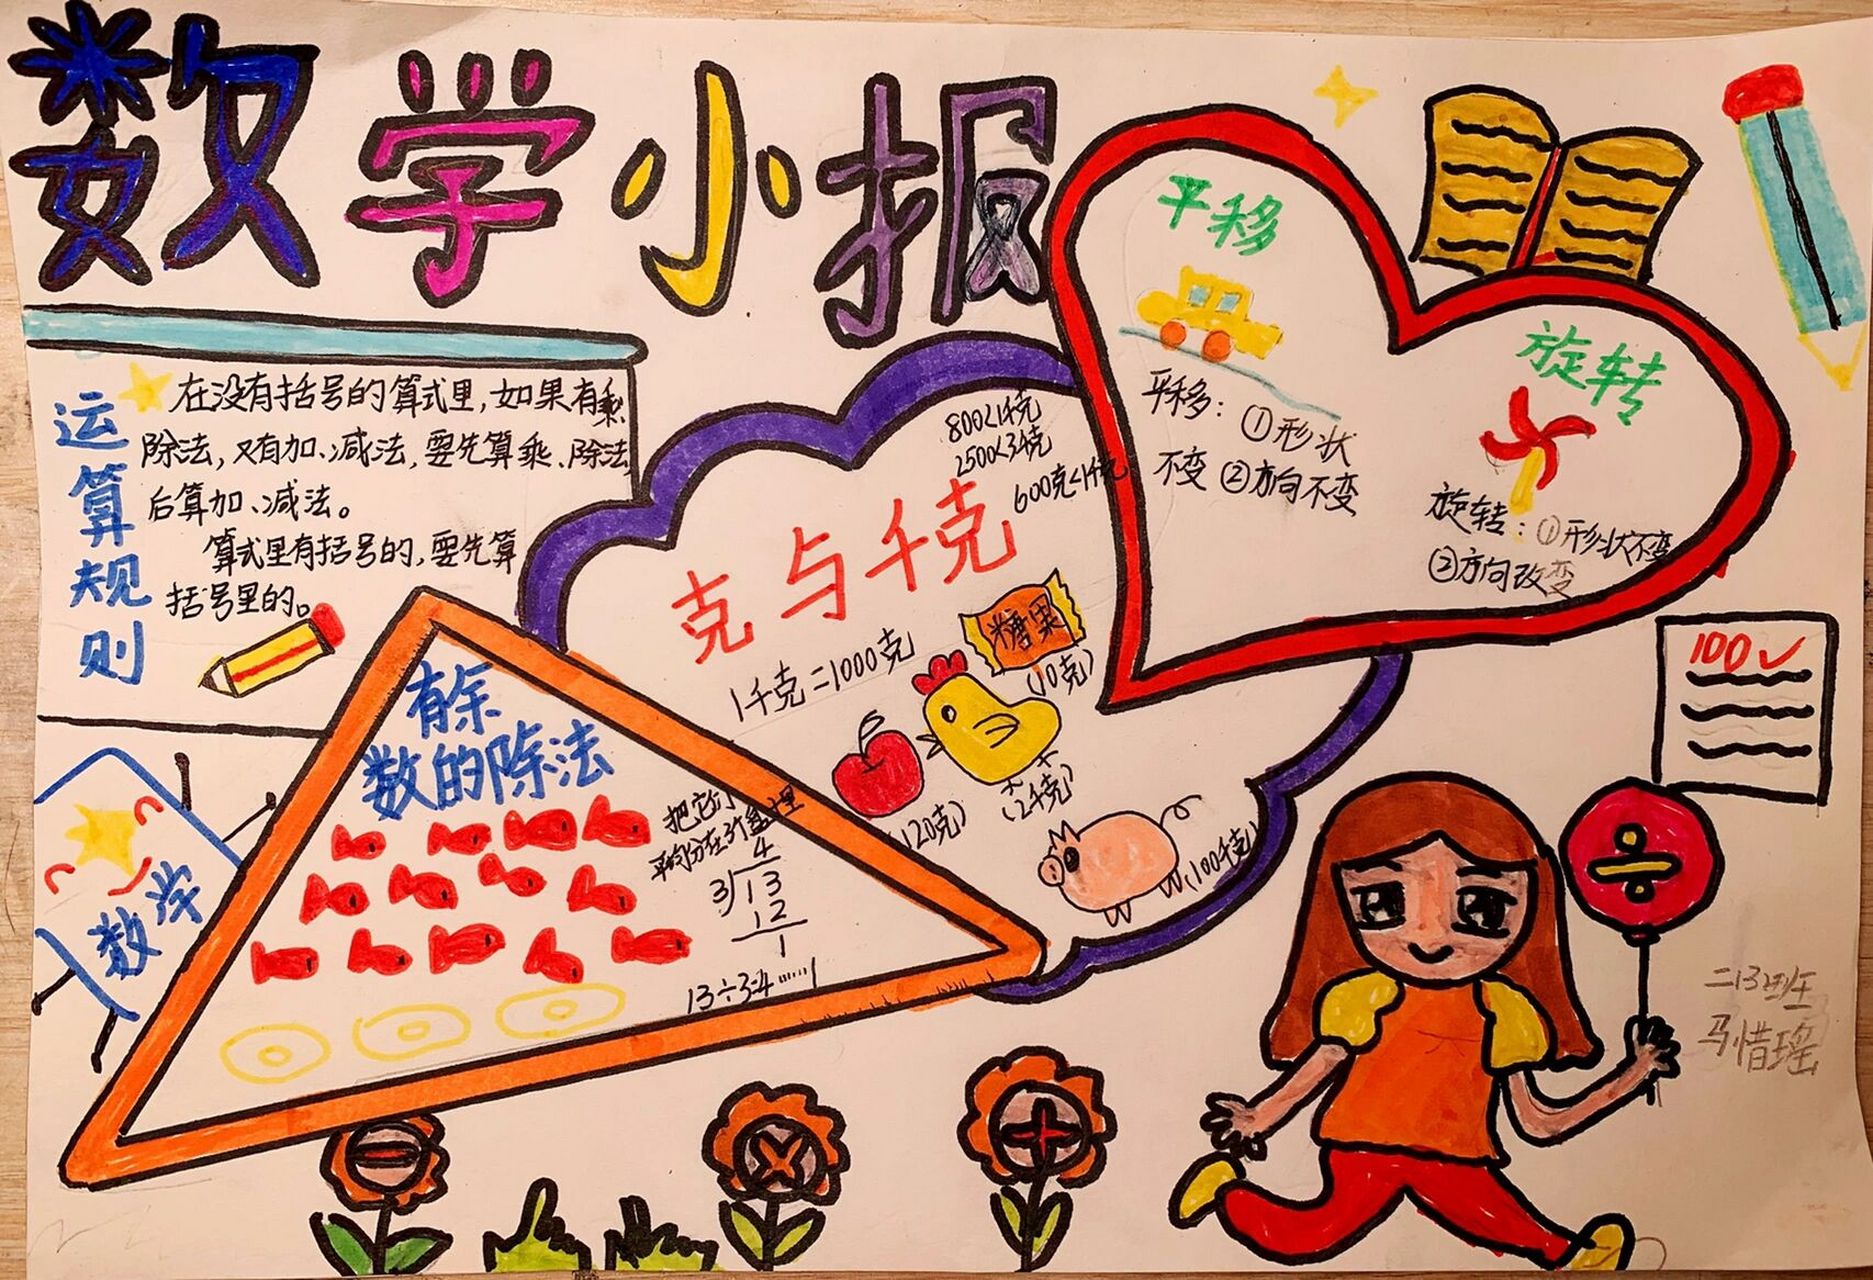 数学小报
运算规则
在没有括号的算式里,如果有乘
除法,又有加、减法,要先算乘、除法
后算加、减法。
算式里有括号的,要先算
括号里的。
数学
有余
数的除法
把它们
平均分在3个盒里
4
3 13
12
1
13÷3=4……1
克与千克
800<1千克
2500<3千克
600克<1千克
1千克=1000克
糖果
(10克)
(2千克)
(120克)
(100千克)
平移
平移:①形状
不变 ②方向不变
旋转
旋转:①形状不变
②方向改变
100✓
÷
二13班
马惜瑶
−
×
+